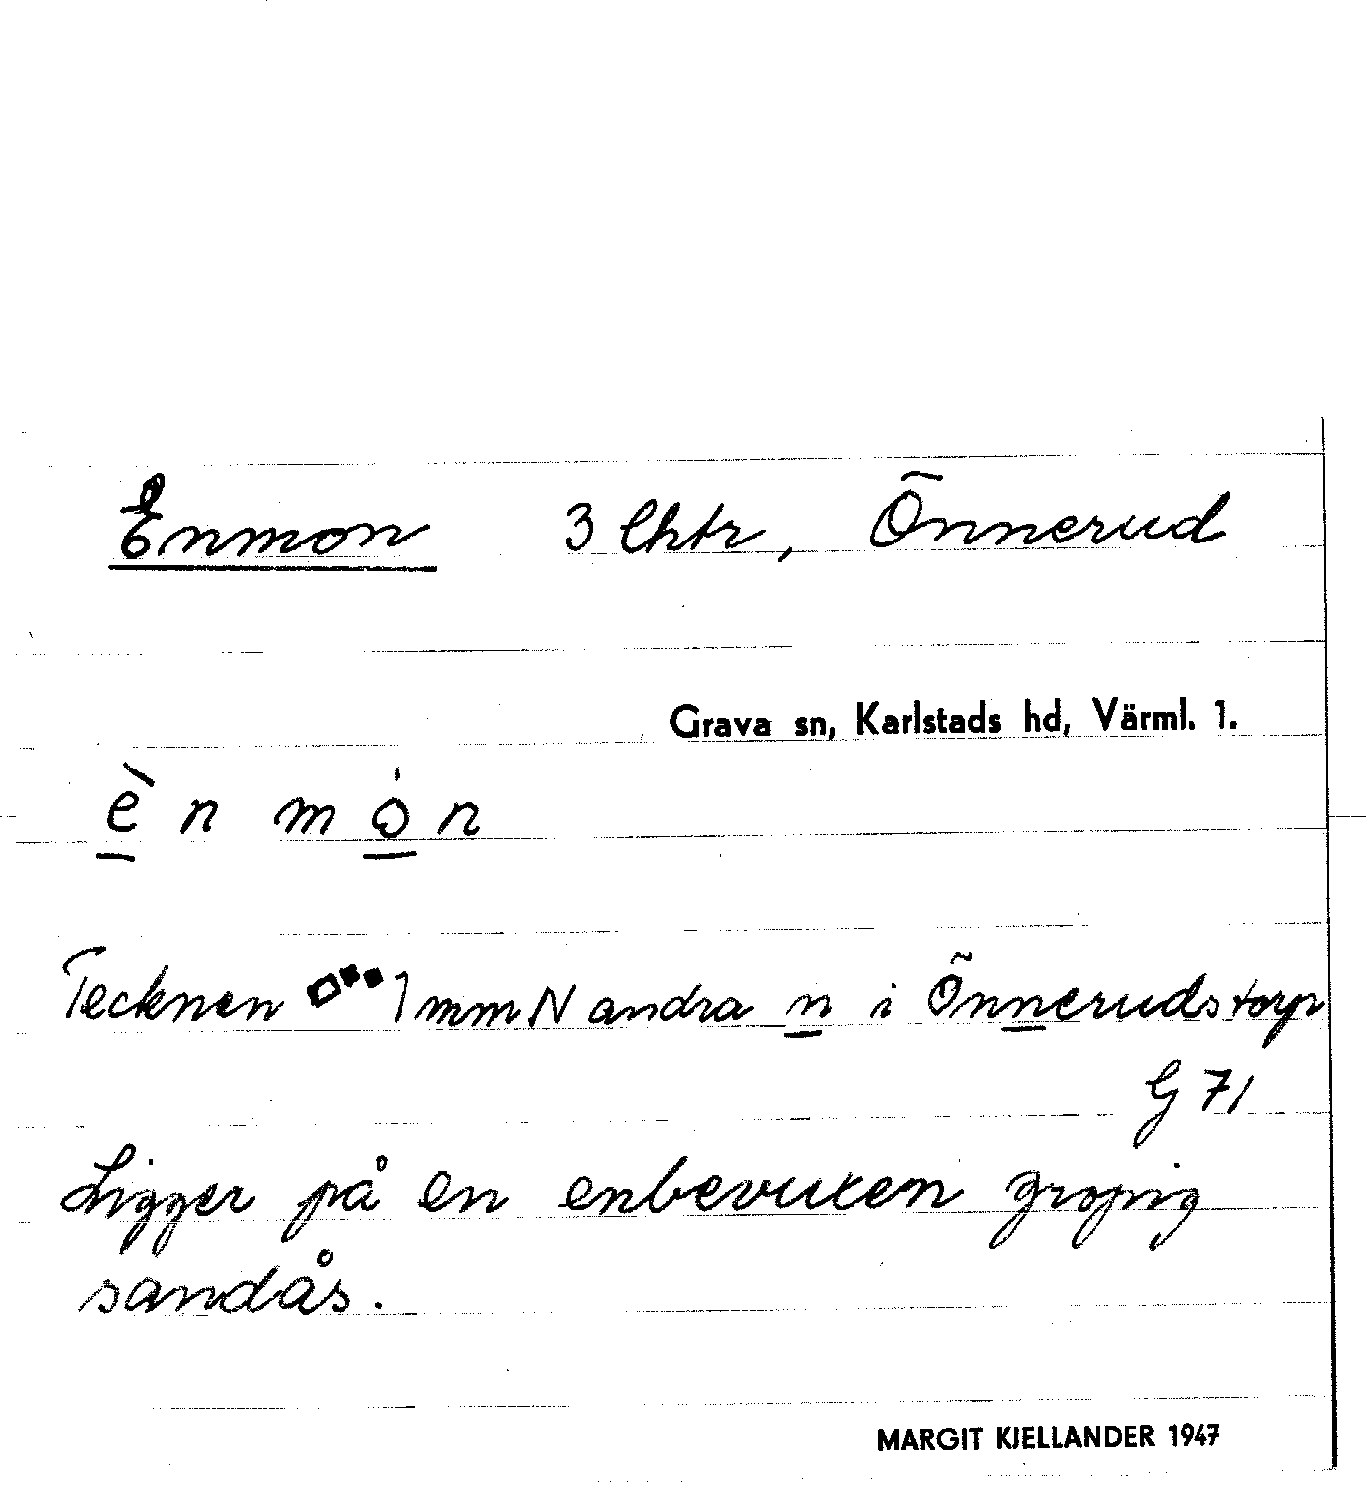 Enmon 3 lhtr, Õnnerud
Grava sn, Karlstads hd, Värml. 1.
è n m o n
Tecknen 1 mm N andra n i Õnnerudstorp
G 71
Ligger på en enbevuxen gropig
sandås.
MARGIT KJELLANDER 1947